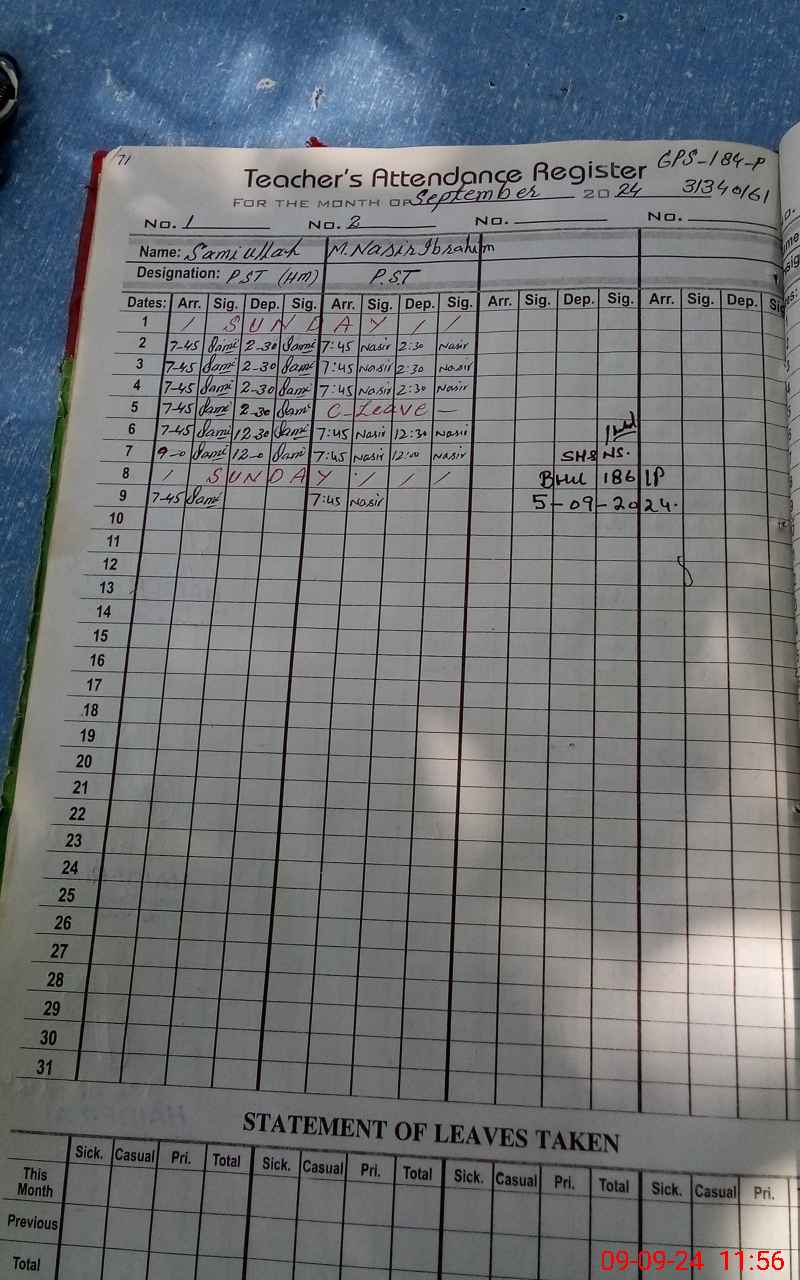 71
GPS-184-P
Teacher's Attendance Register
31340161
FOR THE MONTH OF September 2024
No. 1 No. 2 No. No.
Name: Samiullah M. Nasir Ibrahim
Designation: PST (HM) P.ST
Dates: Arr. Sig. Dep. Sig. Arr. Sig. Dep. Sig. Arr. Sig. Dep. Sig. Arr. Sig. Dep. Sig
1 / SUNDAY / /
2 7-45 Sami 2-30 Sami 7:45 Nasir 2:30 Nasir
3 7-45 Sami 2-30 Sami 7:45 Nasir 2:30 Nasir
4 7-45 Sami 2-30 Sami 7:45 Nasir 2:30 Nasir
5 7-45 Sami 2-30 Sami C-Leave —
6 7-45 Sami 12-30 Sami 7:45 Nasir 12:30 Nasir
7 9-0 Sami 12-0 Sami 7:45 Nasir 12:00 Nasir SH&NS.
8 / SUNDAY / / / / BHU 186 1P
9 7-45 Sami 7:45 Nasir 5-09-2024.
10
11
12
13
14
15
16
17
18
19
20
21
22
23
24
25
26
27
28
29
30
31
STATEMENT OF LEAVES TAKEN
Sick. Casual Pri. Total Sick. Casual Pri. Total Sick. Casual Pri. Total Sick. Casual Pri.
This Month
Previous
Total
09-09-24 11:56